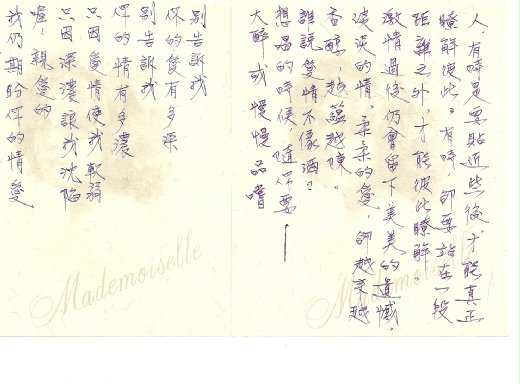 人,有時是要貼近些後才能真正
瞭解彼此。有時,卻要站在一段
距離之外,才能彼此瞭解。
激情過後仍會留下美美的遺憾,
淡淡的情,柔柔的愛,卻越變越
香醇,越蘊越陳。
誰說愛情不像酒?
想喝的時候,隨你要——
大醉或慢慢品嚐
別告訴我
你的愛有多深
別告訴我
你的情有多濃
只因愛情使我軟弱
只因深濃讓我沈陷
喔!親愛的
我仍期盼你的情愛
Mademoiselle
Mademoiselle